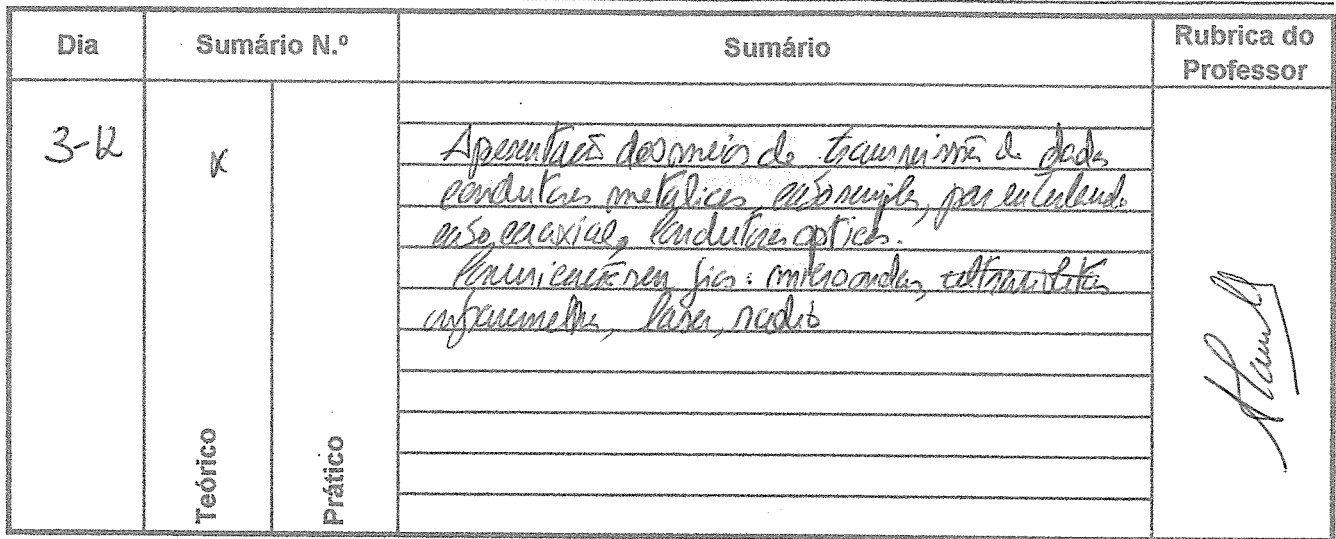 Dia Sumário N.º Sumário Rubrica do Professor
3-12 X
Apresentação dos meios de transmissão de dados
condutores metálicos, cabo simples, par entrelaçado
cabo coaxial, condutores opticos.
Comunicação sem fios: microondas, ultravioletas
infravermelhos, laser, radio
Teórico
Prático